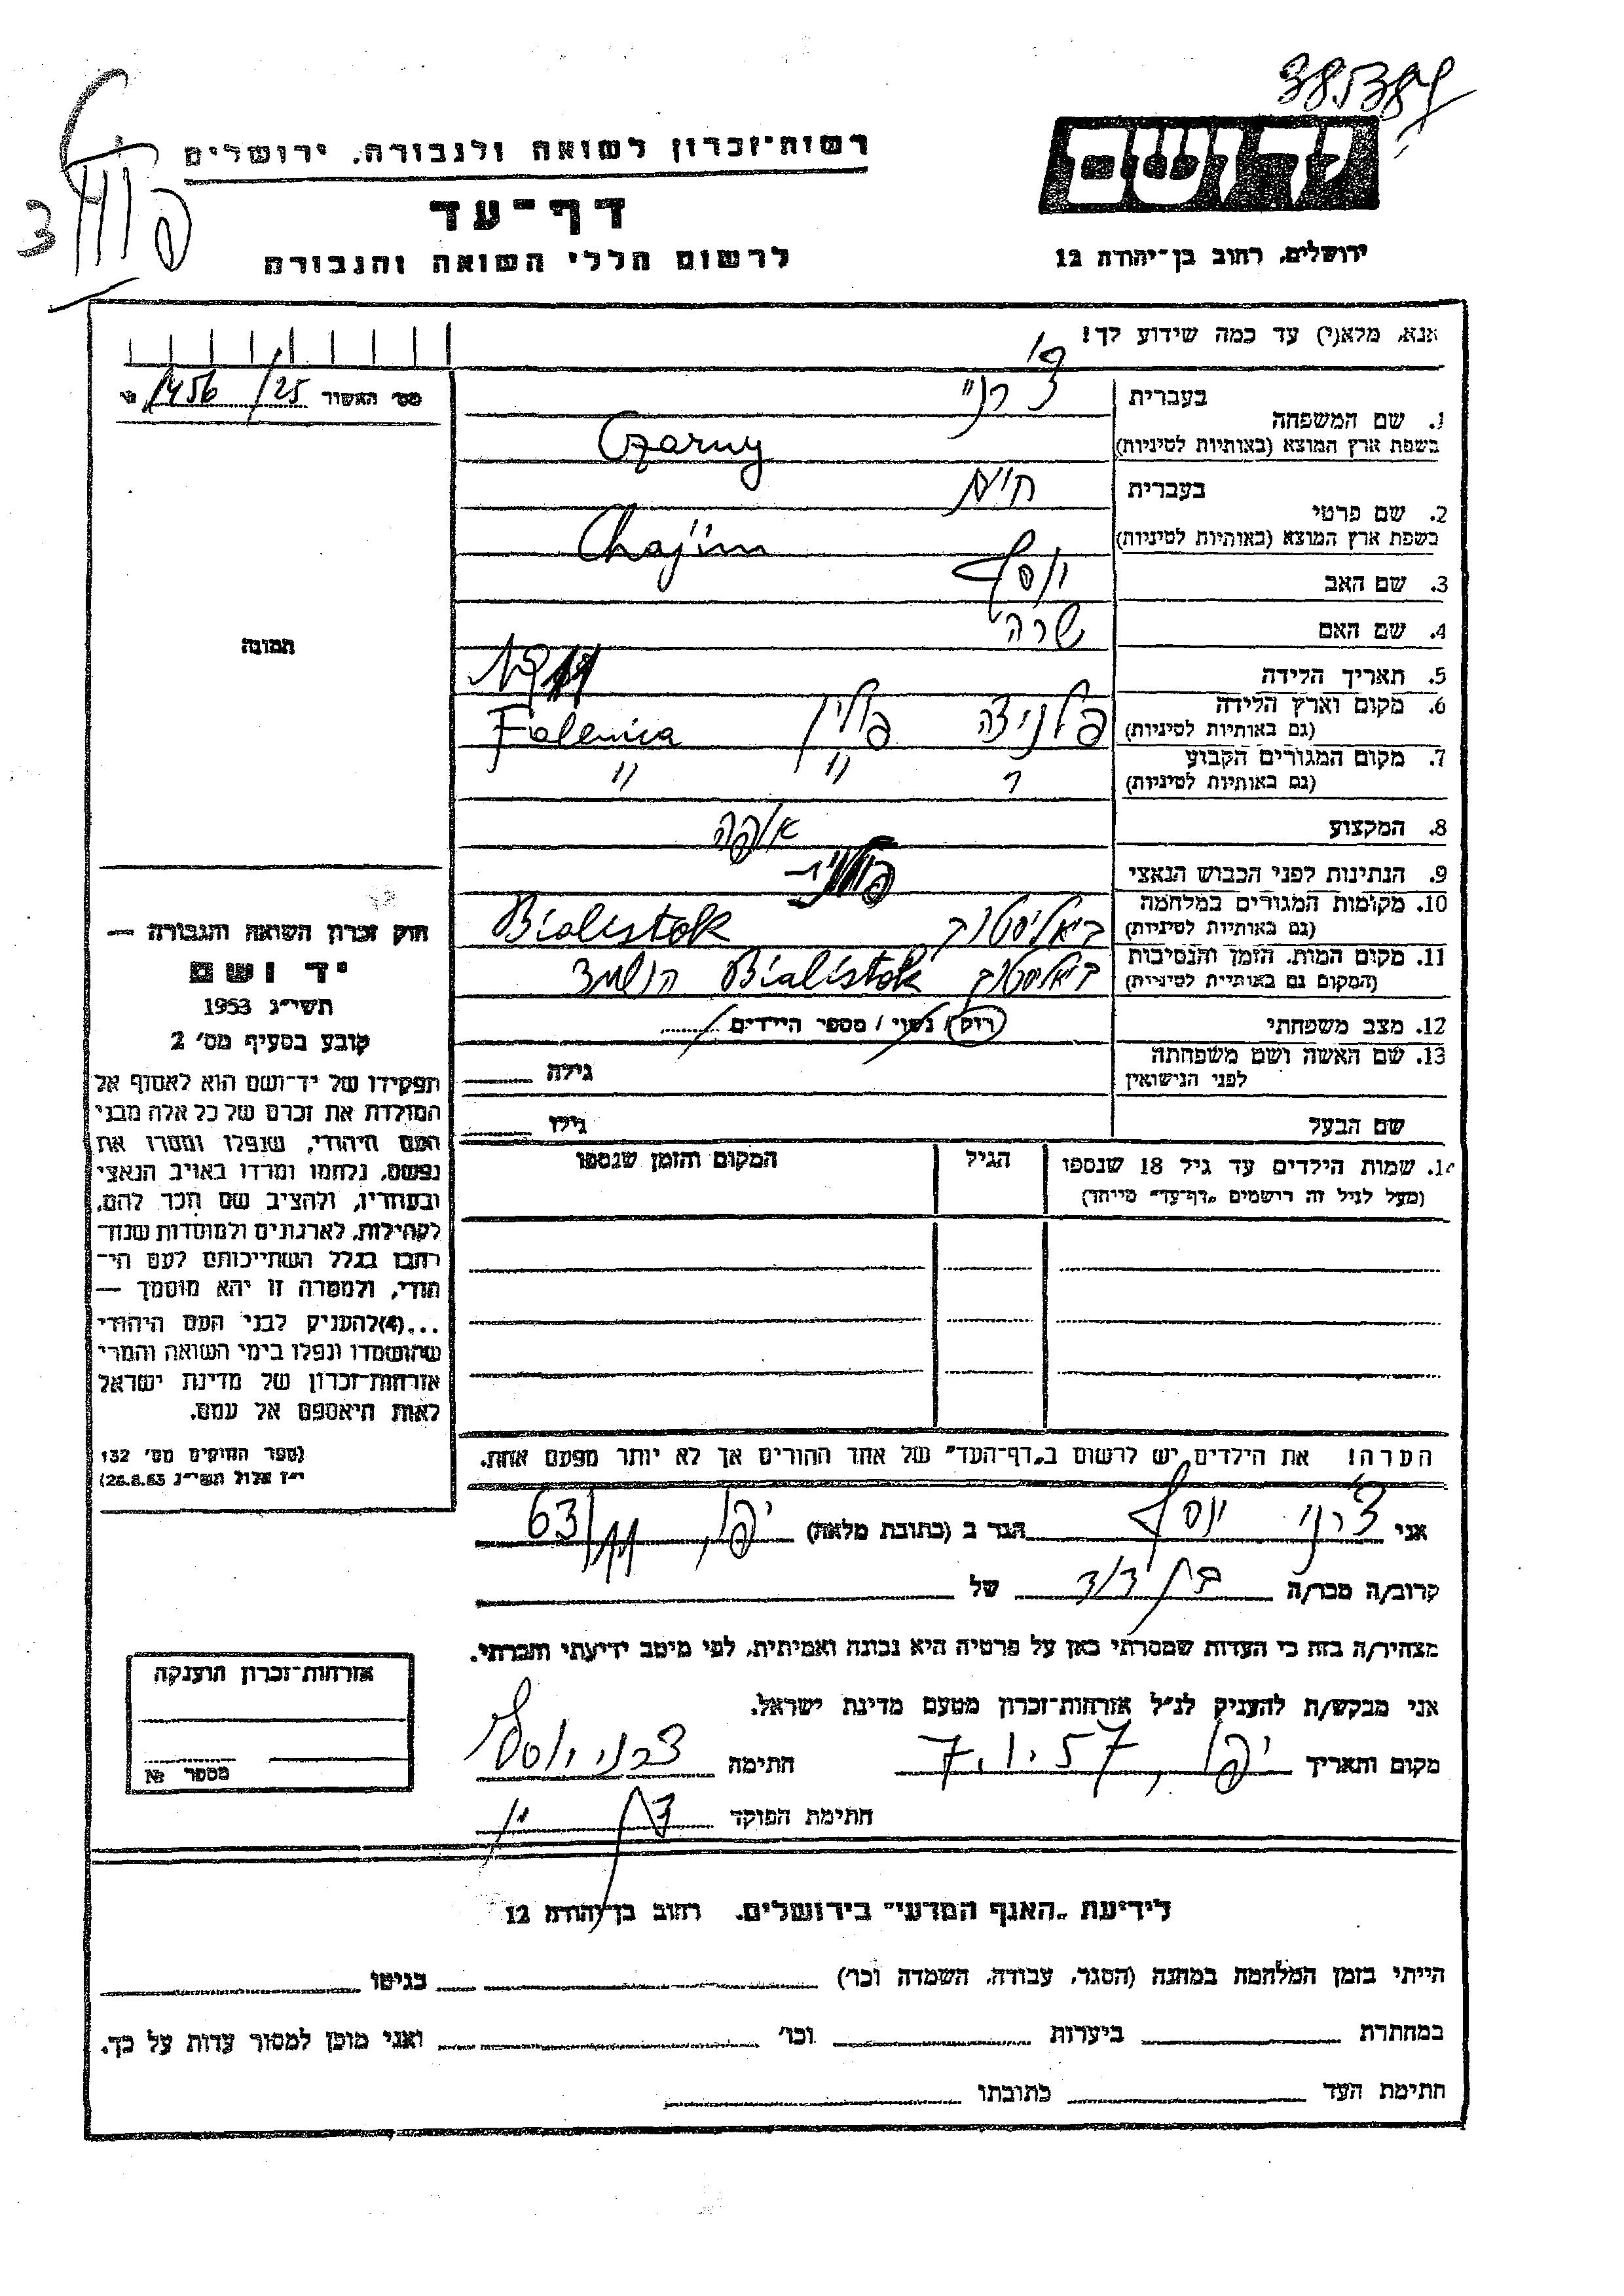 38538
רשות־זכרון לשואה ולגבורה, ירושלים
דף־עד
לרשום חללי השואה והגבורה
יד ושם
ירושלים, רחוב בן־יהודה 12
אנא, מלא(י) עד כמה שידוע לך!
מס׳ האשור 1456/25
בעברית צ׳רני
1. שם המשפחה
בשפת ארץ המוצא (באותיות לטיניות) Czarny
בעברית חיים
2. שם פרטי
בשפת ארץ המוצא (באותיות לטיניות) Chajim
3. שם האב יוסף
4. שם האם שרה
5. תאריך הלידה
6. מקום וארץ הלידה (גם באותיות לטיניות) פלניצה פולין Falenica
7. מקום המגורים הקבוע (גם באותיות לטיניות) " " "
8. המקצוע אופה
9. הנתינות לפני הכבוש הנאצי
10. מקומות המגורים במלחמה (גם באותיות לטיניות) ביאליסטוק Bialistok
11. מקום המות, הזמן והנסיבות (המקום גם באותיות לטיניות) ביאליסטוק Bialistok
12. מצב משפחתי רווק / נשוי / מספר הילדים
13. שם האשה ושם משפחתה לפני הנישואין גילה
שם הבעל גילו
14. שמות הילדים עד גיל 18 שנספו
(מעל לגיל זה רישמים „דף־עד" מייחד)
הגיל
המקום והזמן שנספו
תמונה
חוק זכרון השואה והגבורה —
יד ושם
תשי״ג 1953
קובע בסעיף מס׳ 2
תפקידו של יד־ושם הוא לאסוף אל
המולדת את זכרם של כל אלה מבני
העם היהודי, שנפלו ומסרו את
נפשם, נלחמו ומרדו באויב הנאצי
ובעוזריו, ולהציב שם וזכר להם,
לקהילות, לארגונים ולמוסדות שנח־
רבו בגלל השתייכותם לעם הי־
הודי, ולמטרה זו יהא מוסמך —
...(4)להעניק לבני העם היהודי
שהושמדו ונפלו בימי השואה והמרי
אזרחות־זכרון של מדינת ישראל
לאות היאספם אל עמם.
(ספר החוקים מס׳ 132
י״ז אלול תשי״ג 28.8.53)
הערה! את הילדים יש לרשום ב„דף־העד" של אחד ההורים אך לא יותר מפעם אחת.
אני צ׳רני יוסף הגר ב (כתובת מלאה) יפו,
קרוב/ה מכר/ה בן דוד של
מצהיר/ה בזה כי העדות שמסרתי כאן על פרטיה היא נכונה ואמיתית, לפי מיטב ידיעתי והכרתי.
אני מבקש/ת להעניק לנ״ל אזרחות־זכרון מטעם מדינת ישראל.
מקום ותאריך יפו, 7.1.57 חתימה צרני יוסף
חתימת הפוקד
אזרחות־זכרון הוענקה
מספר №
לידיעת „האגף המדעי" בירושלים, רחוב בן־יהודה 12
הייתי בזמן המלחמה במחנה (הסגר, עבודה, השמדה וכו׳) בגיטו
במחתרת ביערות וכו׳ ואני מוכן למסור עדות על כך.
חתימת העד כתובתו